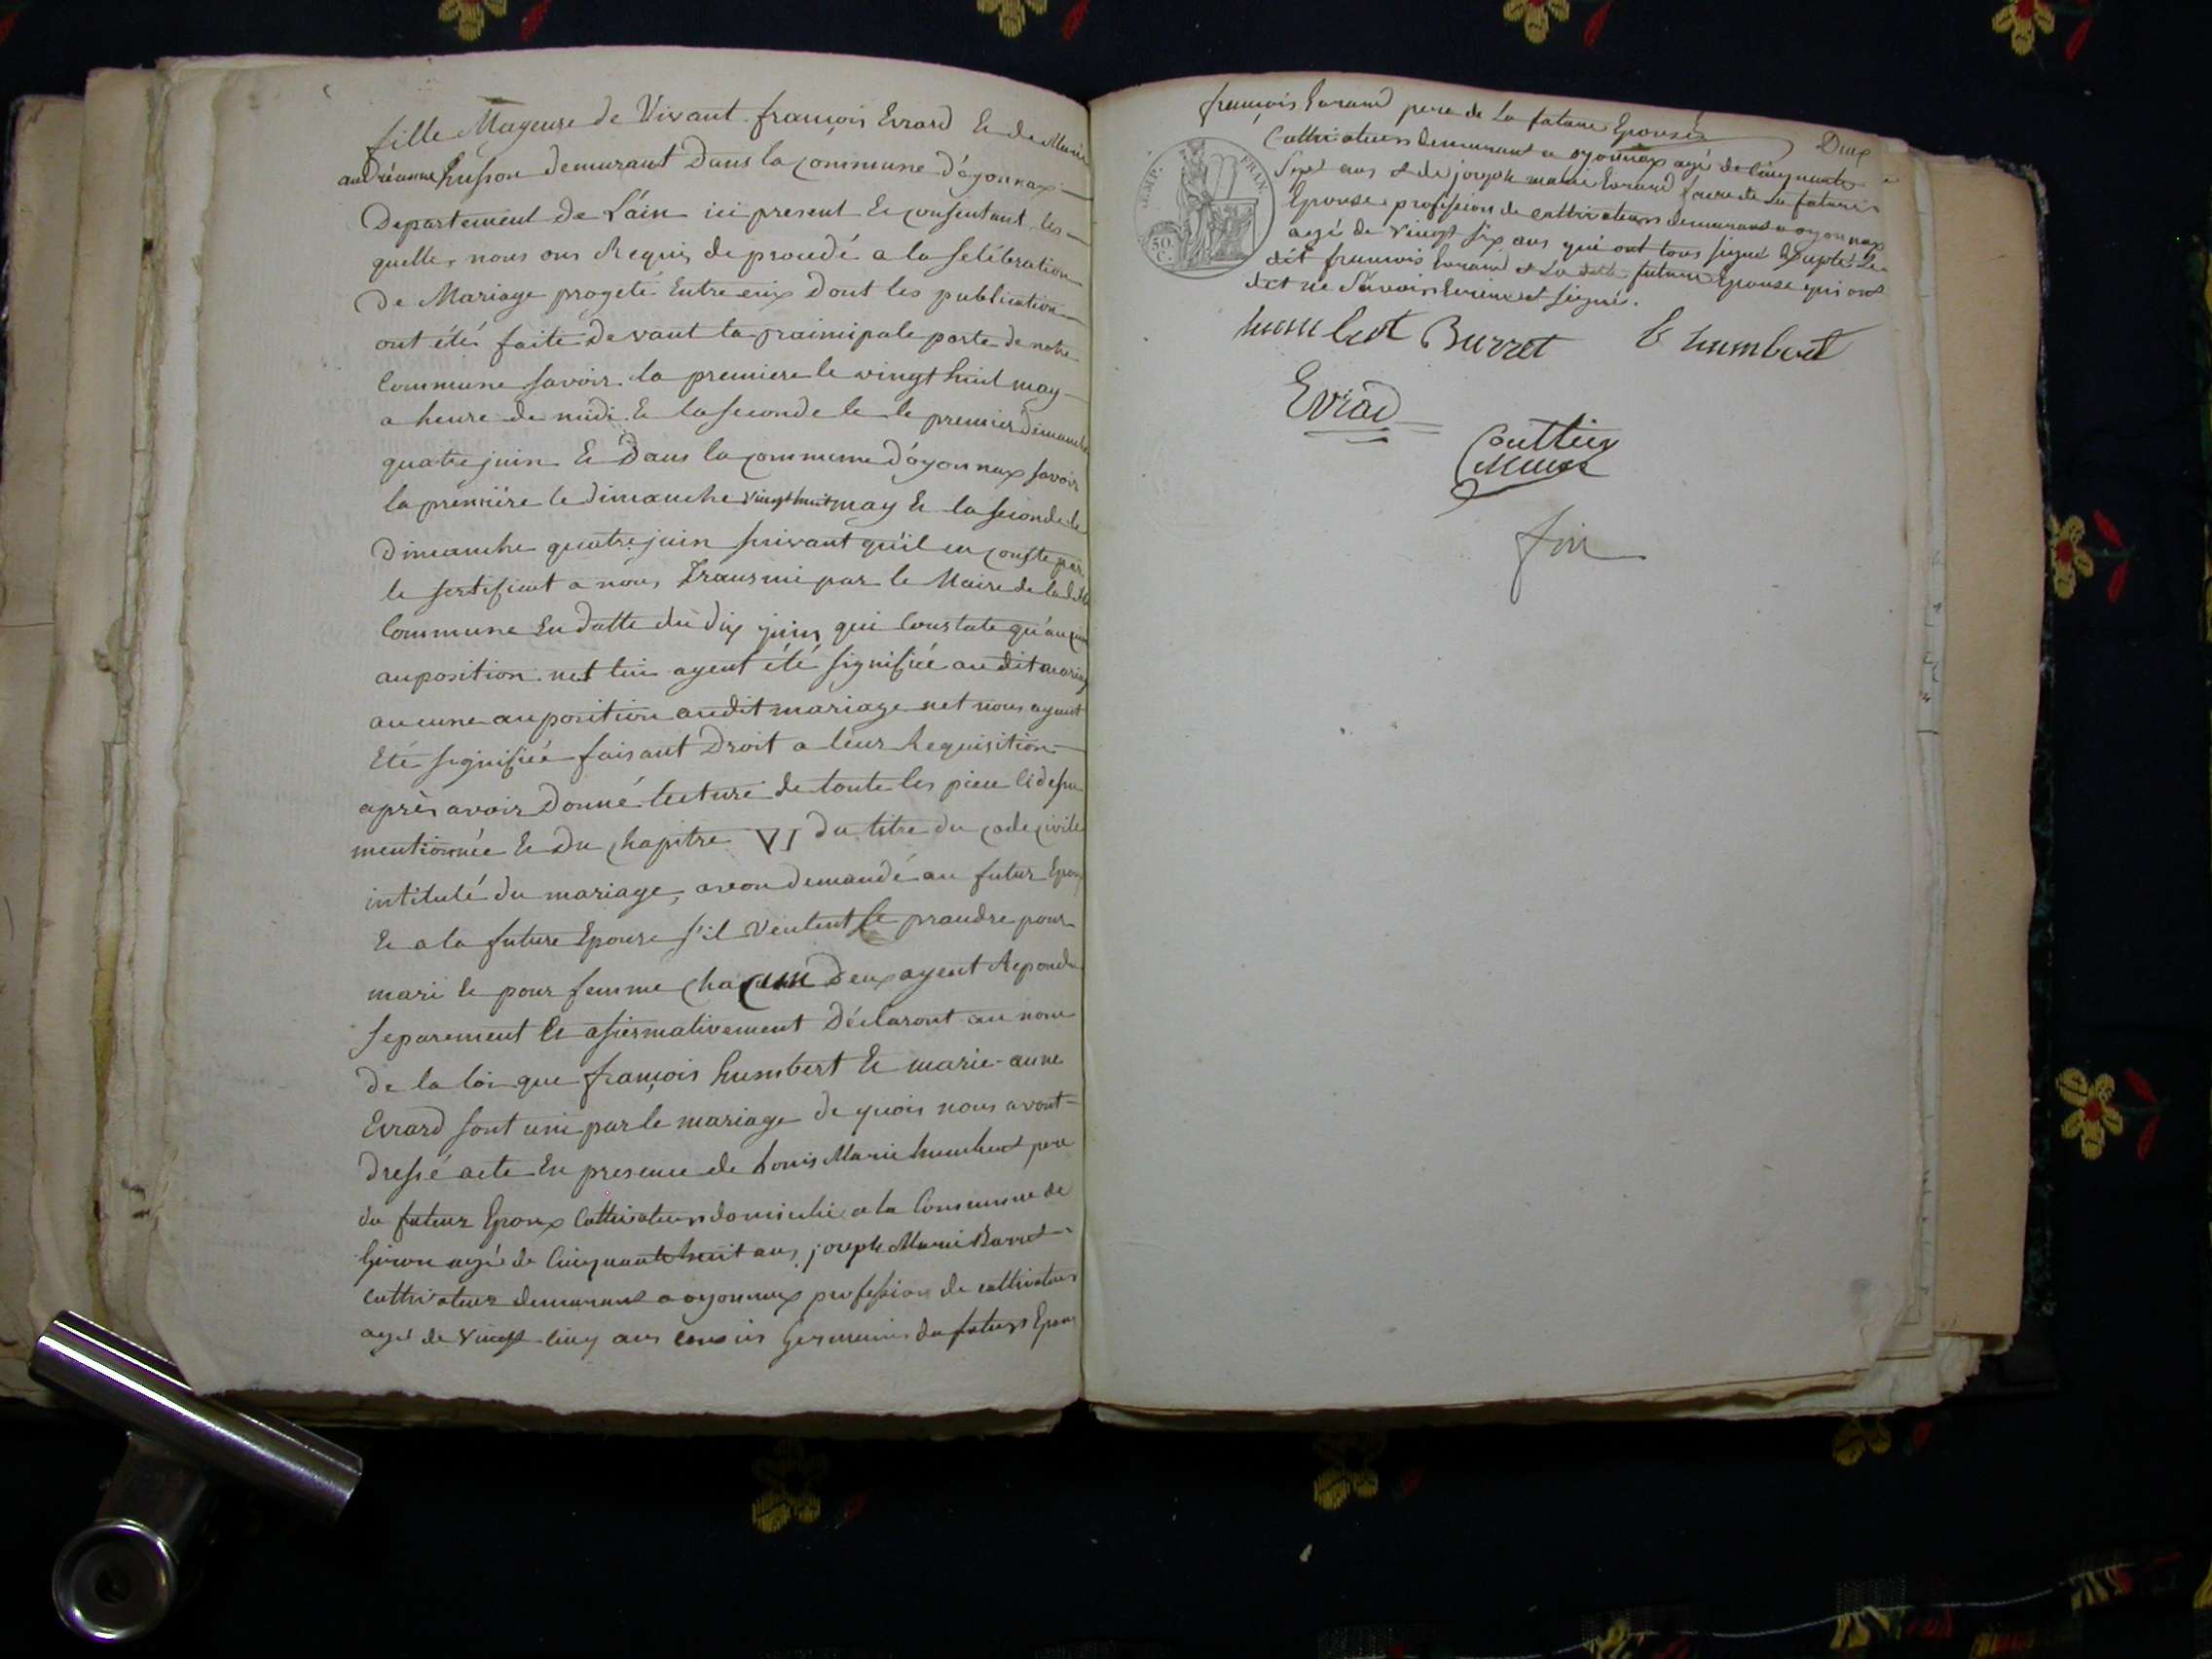 fille Mageure de Vivant françois Evrard Et de Marie
andréanne husson demurant Dans la commune d'oyonnax
Departement de L'ain ici present Et consentant les
quelle, nous ons Requis de procedé a la selébration
De Mariage progeté Entre eux Dont les publication
ont été faite devant la prainipale porte de notre
Commune savoir la premiere le vingt huit may
a heure de midi Et la seconde le le premier dimanche
quatre juin Et Dans la commune d'oyonnax savoir
la premiére le dimanche vingt huit may Et la seconde le
Dimanche quatre juin suivant qu'il en conste par
le sertificat a nous Transmi par le Maire de ladite
Commune En datte du dix juin qui Constate qu'aucune
auposition net lui ayent été signifiée au dit mariage
aucune auposition audit mariage net nous ayant
Eté signifiée faisant Droit a leur Requisition
après avoir Donné lecture de toute les piece Cidessu
mentionnée Et Du chapitre VI du titre du code civile
intitulé du mariage, avon demandé au futur Epoux
Et a la future Epouse s'il veulent se prandre pour
mari Et pour femme chacun Deux ayent Repondu
separement Et afirmativement Déclaront au nom
de la loi que françois humbert Et marie-anne
Evrard sont uni par le mariage de quois nous avont
Dressé acte En presence de Louis Marie humbert pere
du futeur Epoux Cultivateur domicilié a la Commune de
Giron agé de Cinquante huit ans, joseph Marie Barret
cultivateur demurant a oyonnax profession de cultivateur
agé de vingt cinq ans cousin Germain du futur Epoux
françois Evrard pere de La future Epouse Deux
Cultivateur demurant a oyonnax agé de Cinquante
Sept ans et de joseph marie Evrard frere de La future
Epouse profession de cultivateur demurant a oyonnax
agé de vingt six ans qui ont tous signé Exsepté Le
dit francois Evrard et La dite future Epouse qui ont
dit ne Savoir Ecrire et signé.
TIMP. FRAN.
50.
C.
humbert Burret L humbert
Evrad
fin